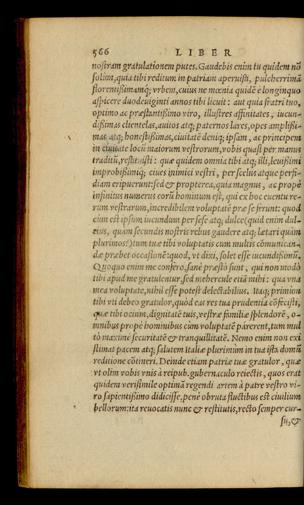 566 LIBER
nostram gratulationem putes. Gaudebis enim tu quidem nõ
solùm, quia tibi reditum in patriam aperuisti, pulcherrimã
florentissimamq; vrbem, cuius ne mœnia quidẽ è longinquo
aspicere duodeuiginti annos tibi licuit: aut quia fratri tuo,
optimo ac præstantissimo viro, illustres affinitates, iucun-
dissimas clientelas, auitos atq; paternos lares, opes amplissi-
mas atq; honestissimas, ciuitatẽ deniq; ipsam, ac principem
in ciuitate locũ maiorum vestrorum, vobis quasi per manus
traditũ, restituisti: quæ quidem omnia tibi atq; illi, leuissimi
improbissimiq; ciues inimici vestri, per scelus atque perfi-
diam eripuerunt: sed & propterea, quia magnus, ac propè
infinitus numerus eorũ hominum est, qui ex hoc euentu re-
rum vestrarum, incredibilem voluptatẽ præ se ferunt: quod
cùm est ipsum iucundum per sese atq; dulce (quid enim dul-
cius, quàm secundis nostris rebus gaudere atq; lætari quàm
plurimos?) tum tuæ tibi voluptatis cum multis cõmunican-
dæ præbet occasionẽ: quod, vt dixi, solet esse iucundissimũ.
Quoquo enim me confero, sanè præstò sunt, qui non modò
tibi apud me gratulentur, sed mihi etiã: quia vna
mea voluptate, nihil esse potest delectabilius. Itaq; primùm
tibi vti debeo gratulor, quòd eas res tua prudentia cõfecisti,
quæ tibi ocium, dignitatẽ tuis, vestræ familiæ splendorẽ, o-
mnibus propè hominibus cùm voluptatẽ pärerent, tum mul
tò maximè securitatẽ & tranquillitatẽ. Nemo enim non exi
stimat pacem atq; salutem Italiæ plurimùm in tua istã domũ
reditione cõtineri. Deinde etiam patriæ tuæ gratulor, quæ
vt olim vobis vnis à reipub. gubernaculo reiectis, quos erat
quidem verisimile optimã regendi artem à patre vestro vi-
ro sapientissimo didicisse, penè obruta fluctibus est ciuilium
bellorum: ita reuocatis nunc & restitutis, recto semper cur-